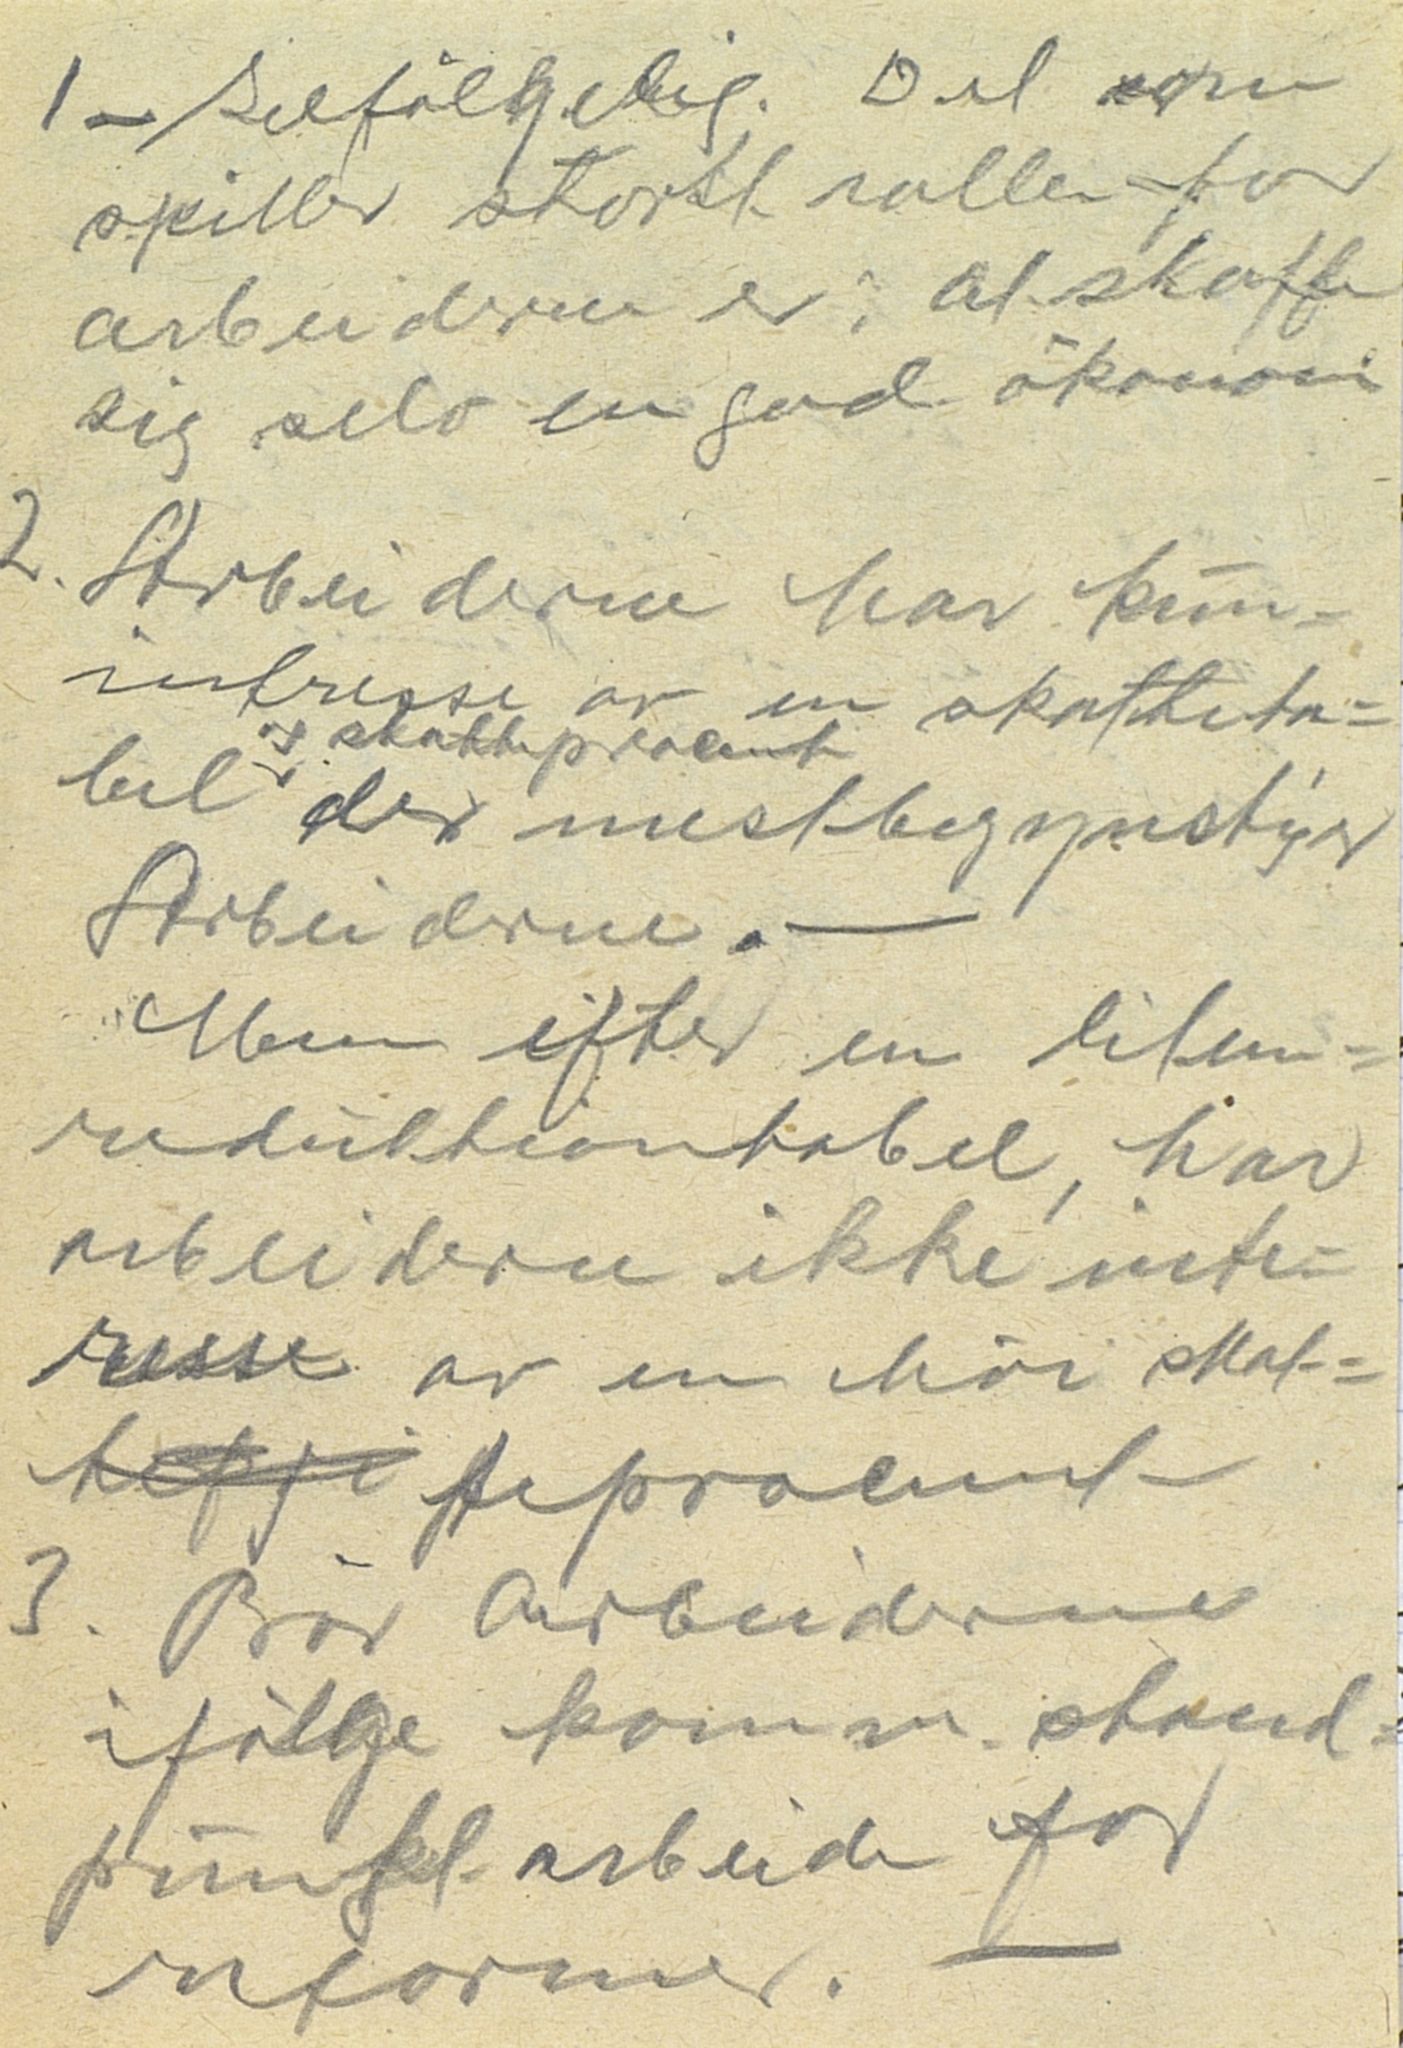 1 – Selfölgelig. Det som
spiller störst rollen for
arbeiderne er; at skaffe
sig selv en god ökonomi
2. Arbeiderne har kün-
intresse av en skatteta-
bel og skatteprocent
der mestbegynstiger
Arbeiderne. —
Men efter en liten-
reduktiontabel, har
arbeiderne ikke inte-
resse av en höi skat-
teprocent
3. Bör Arbeiderne
ifölge komm. stand-
pünkt arbeide for
reformer. —